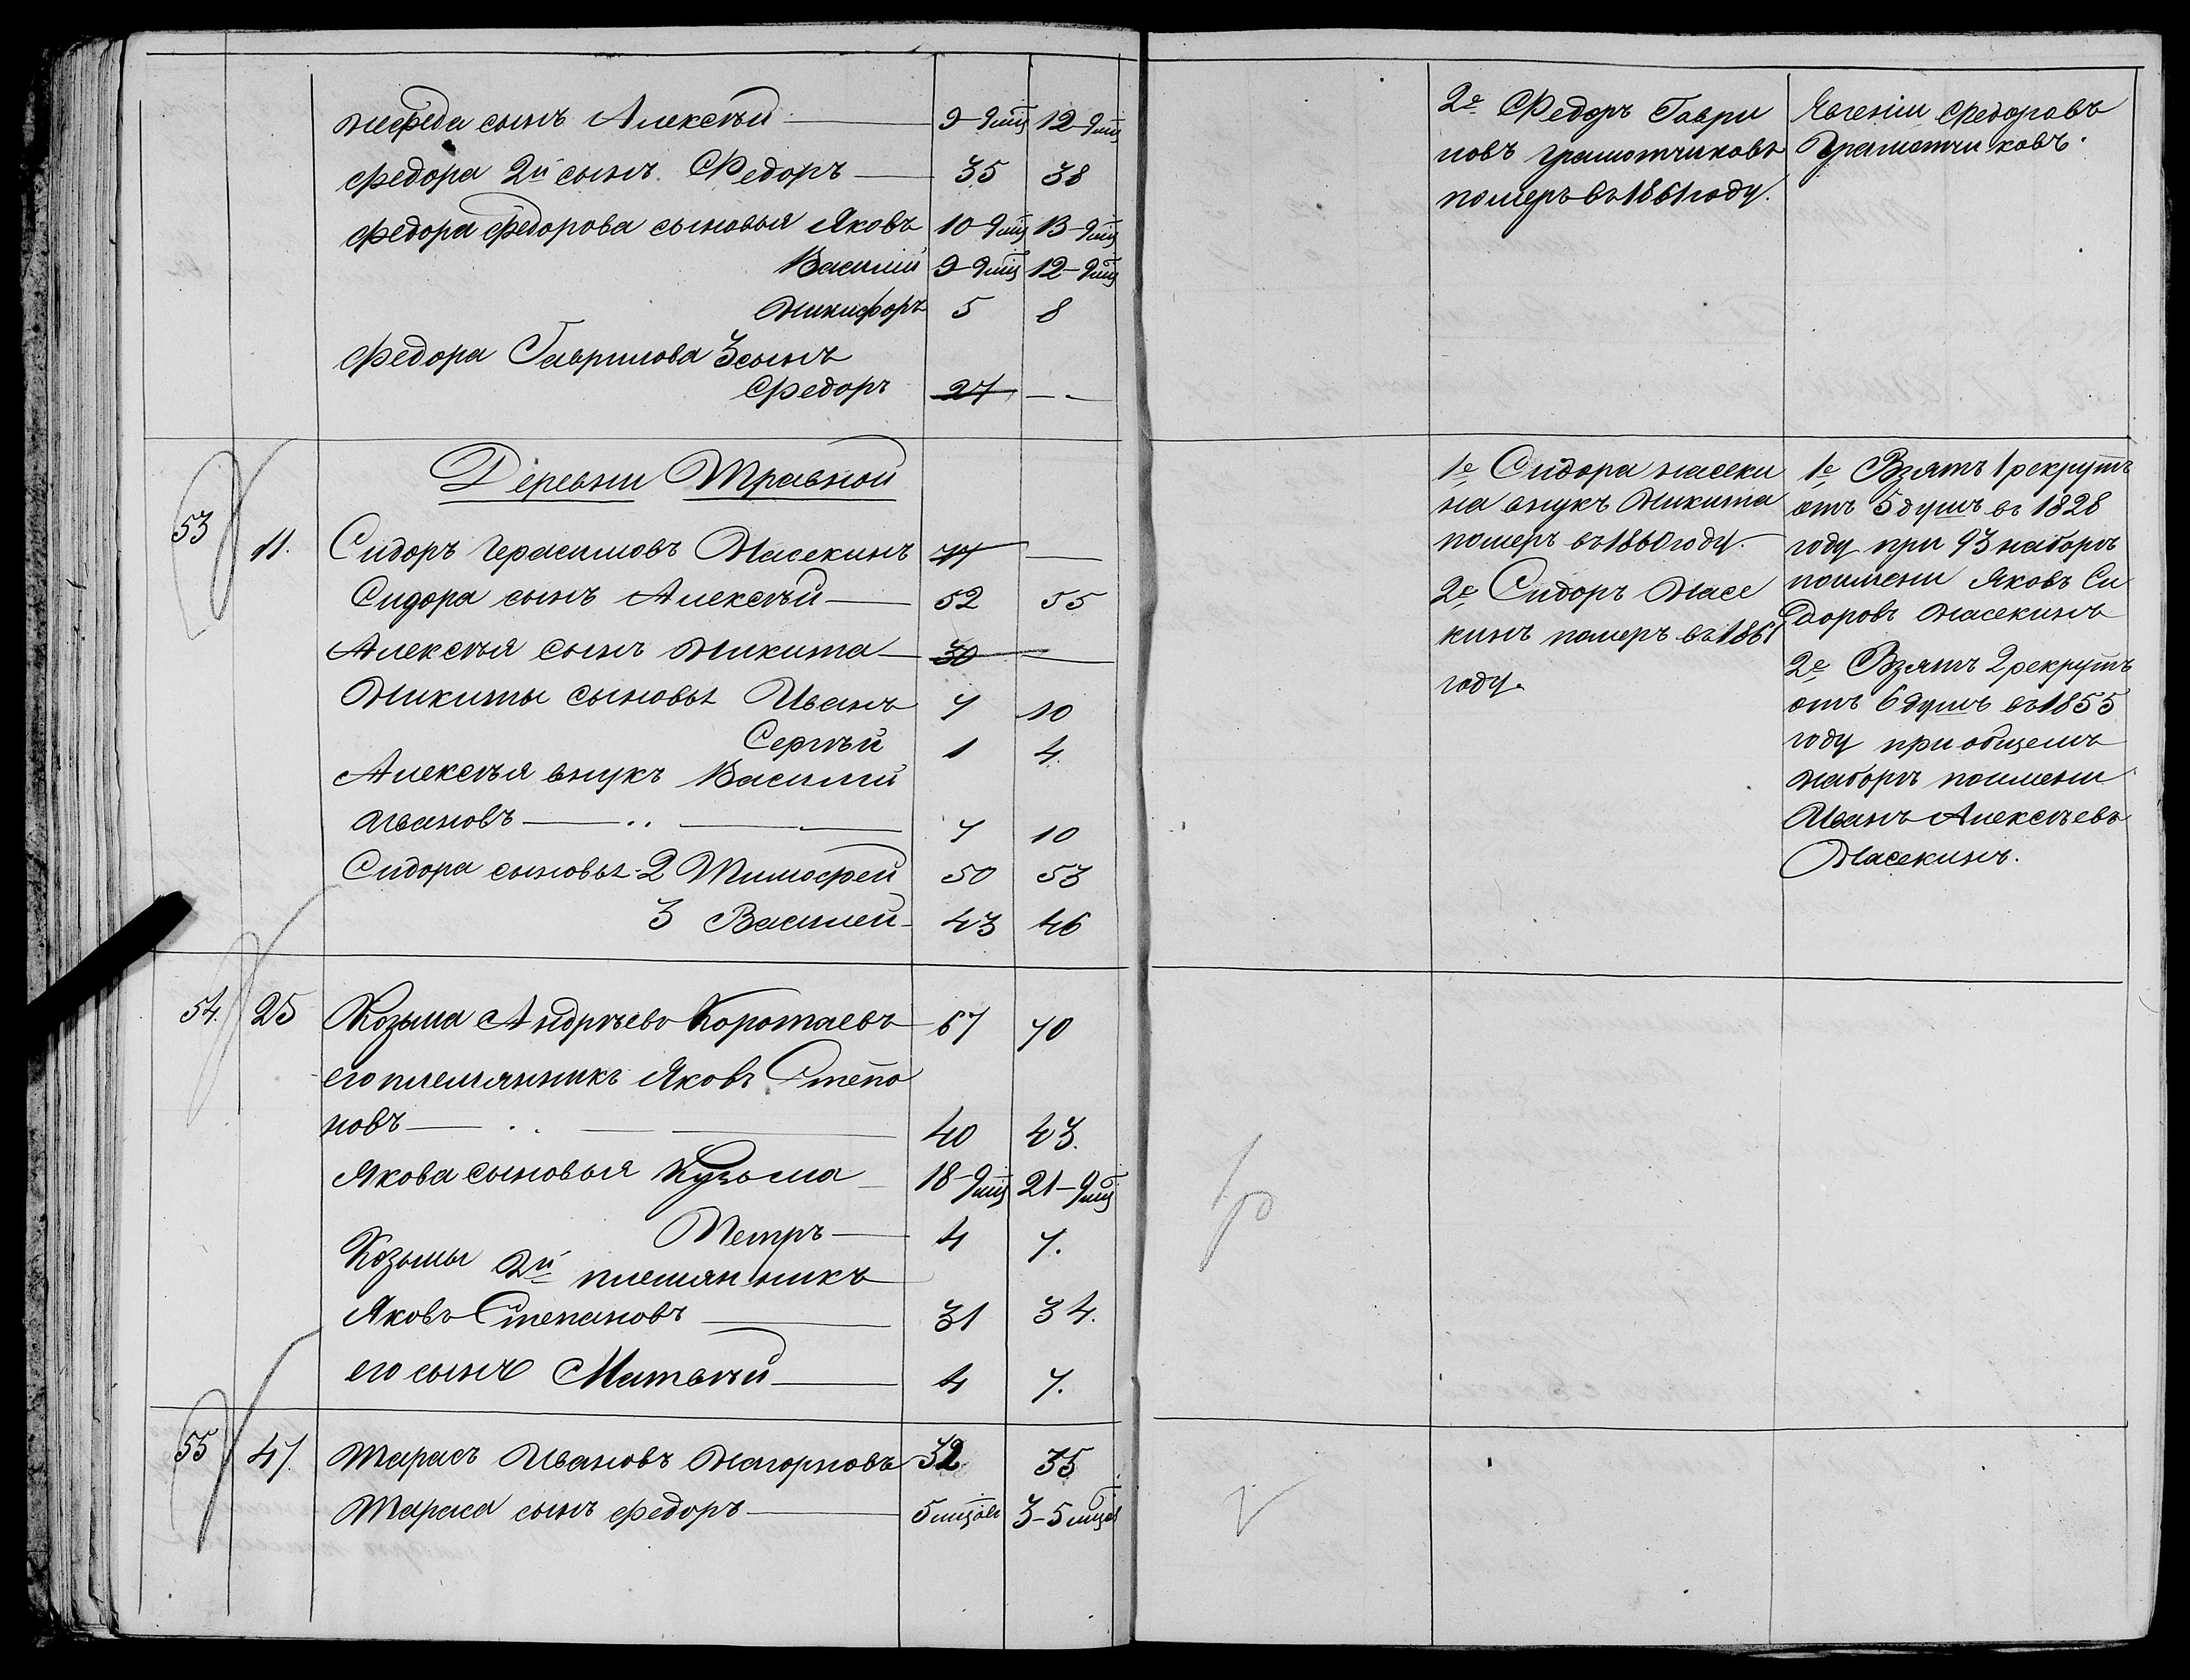 Нефеда сынъ Алексѣй — 9-9 мц 12-9 мц
Федора 2й сынъ Федоръ — 35 38
Федора Федорова сыновья Яковъ 10-9 мц 13-9 мц
Василій 9-9 мц 12-9 мц
Никифоръ 5 8
Федора Гаврилова 3 сынъ
Федоръ 27 —
Деревни Травной
53 11. Сидоръ Герасимовъ Насекинъ 77 —
Сидора сынъ Алексѣй — 52 55
Алексѣя сынъ Никита — 30 —
Никиты сыновья Иванъ 7 10
Сергѣй 1 4.
Алексѣя внукъ Василій
Ивановъ — 7 10
Сидора сыновья 2 Тимофей 50 53
3 Василей 43 46
54. 25 Козьма Андрѣевъ Коротаевъ 67 70
его племянникъ Яковъ Степа
новъ — 40 43.
Якова сыновья Кузьма 18-9 мц 21-9 мц
Петръ — 4 7.
Козьмы 2й племянникъ
Яковъ Степановъ — 31 34.
его сынъ Матвѣй — 4 7.
55 47. Тарасъ Ивановъ Нагорновъ 32 35
Тараса сынъ Федоръ — 5 мцовъ 3-5 мцов
2е Федоръ Гаври
ловъ Грамотчиковъ
померъ въ 1861 году.
1е Сидора Насеки
на внукъ Никита
померъ въ 1860 году.
2е Сидоръ Насе
кинъ померъ въ 1861
году.
Евгеніи Федоровъ
Грамотчиковъ.
1е Взятъ 1 рекрутъ
отъ 5 душъ въ 1828
году при 93 наборѣ
поимени Яковъ Си
доровъ Насекинъ
2е Взятъ 2 рекрутъ
отъ 6 душъ въ 1855
году при общемъ
наборѣ поимени
Иванъ Алексѣевъ
Насекинъ.